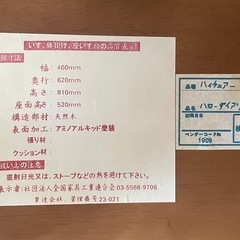 いす、腰掛け、座いす類の品質表示
外形寸法
幅：460mm
奥行：620mm
高さ：810mm
座面高さ：520mm
構造部材：天然木
表面加工：アミノアルキド塗装
張り材：
クッション材：
取扱い上の注意
直射日光又は、ストーブなどの熱をさけて下さい。
表示者：社団法人全国家具工業連合会 03-5566 9706
製造会社、管理番号 23-021
品種 ハイチェアー
品名 ハローダイア
出荷月日
ベンダーコードNo.
1909